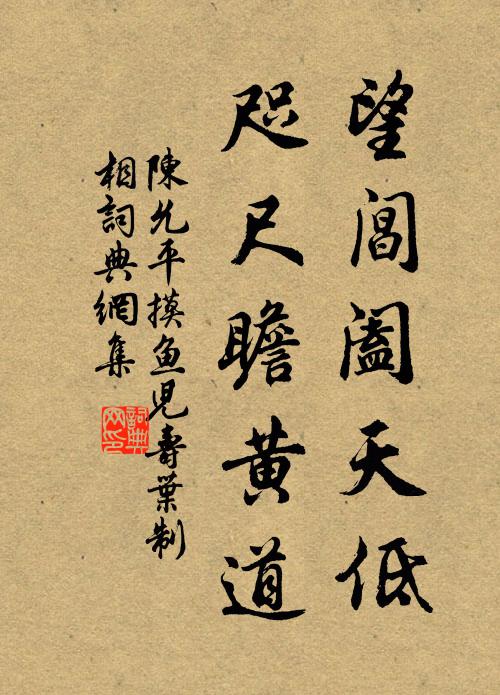 望閶闔天低
咫尺瞻黃道
陳允平摸魚兒壽葉制
相詞典網集
詞典网印